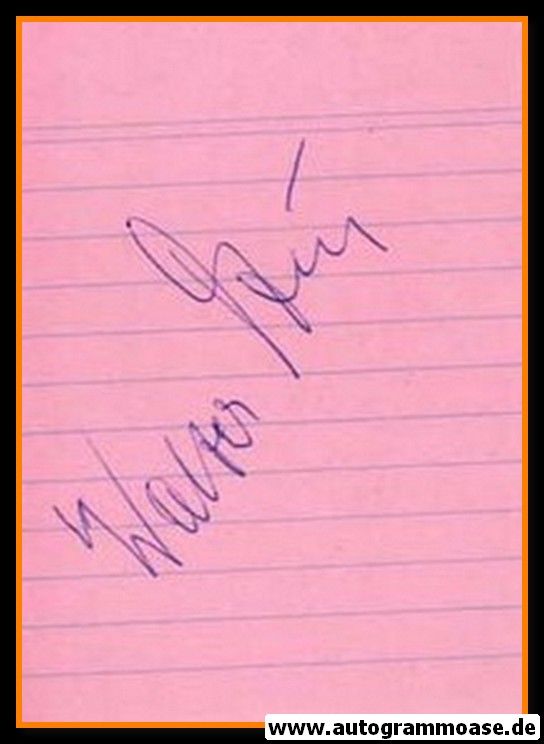 Walter
www.autogrammoase.de